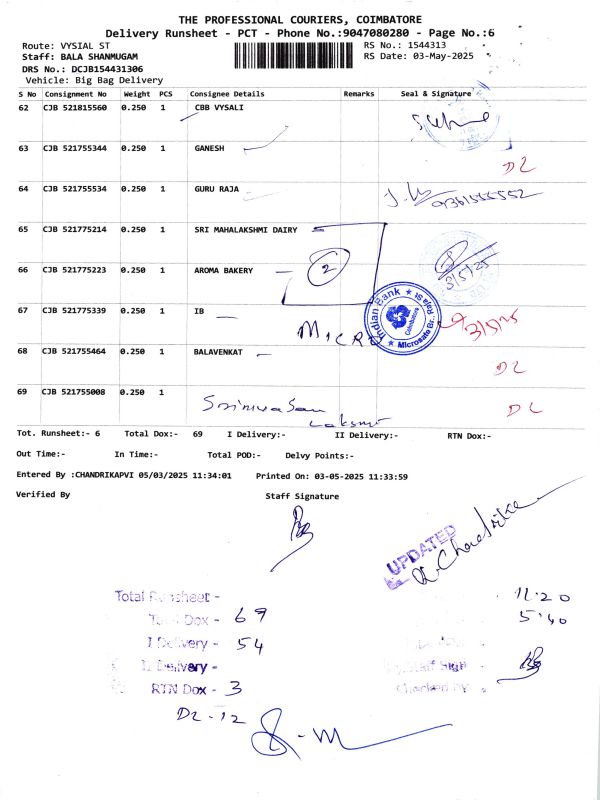 THE PROFESSIONAL COURIERS, COIMBATORE
Delivery Runsheet - PCT - Phone No.:9047080280 - Page No.:6
Route: VYSIAL ST
RS No.: 1544313
Staff: BALA SHANMUGAM
RS Date: 03-May-2025
DRS No.: DCJB154431306
Vehicle: Big Bag Delivery
S No Consignment No Weight PCS Consignee Details Remarks Seal & Signature
62 CJB 521815560 0.250 1 CBB VYSALI
63 CJB 521755344 0.250 1 GANESH DL
64 CJB 521755534 0.250 1 GURU RAJA 9361555552
65 CJB 521775214 0.250 1 SRI MAHALAKSHMI DAIRY
66 CJB 521775223 0.250 1 AROMA BAKERY 2 3/5/25
67 CJB 521775339 0.250 1 IB MICRO Indian Bank Microsate Br. Coimbatore 3/5/25
68 CJB 521755464 0.250 1 BALAVENKAT DL
69 CJB 521755008 0.250 1 Srinivasan DL
Tot. Runsheet:- 6 Total Dox:- 69 I Delivery:- II Delivery:- RTN Dox:-
Out Time:- In Time:- Total POD:- Delvy Points:-
Entered By :CHANDRIKAPVI 05/03/2025 11:34:01 Printed On: 03-05-2025 11:33:59
Verified By Staff Signature
UPDATED
Total Runsheet - 11.20
Total Dox - 69 5.40
I Delivery - 54
II Delivery - Staff Sign -
RTN Dox - 3 Checked by -
DL - 12